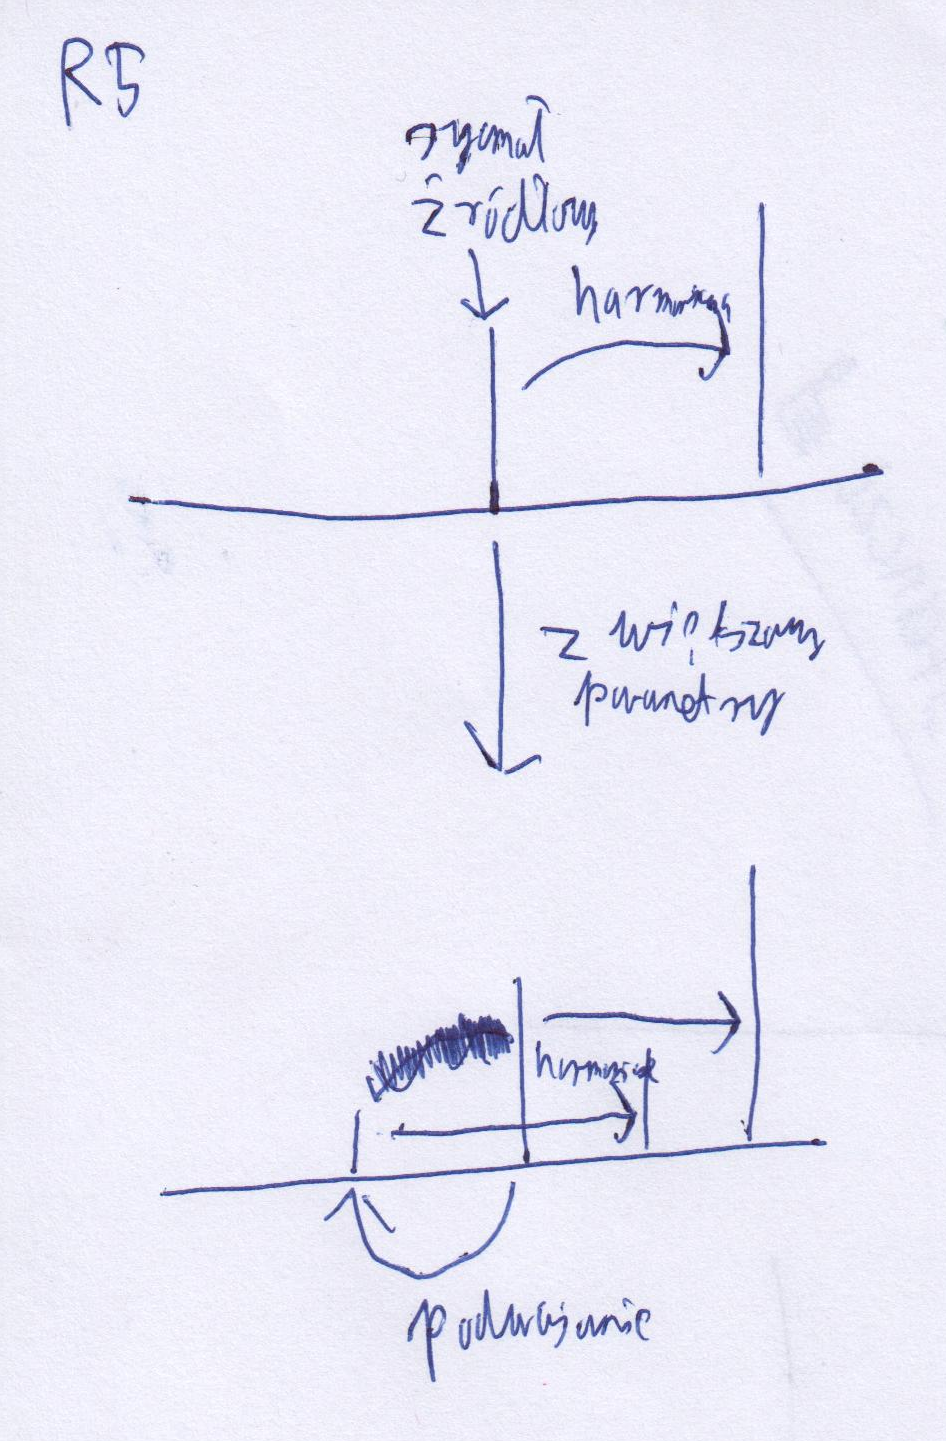 R5
sygnał
źródłowy
harmoniczna
zwiększamy
parametry
harmoniczne
podwajanie